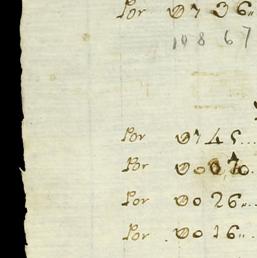 Por 0736..
19867
Por 0745...
Por 0070.
Por 0026..
Por 0016..